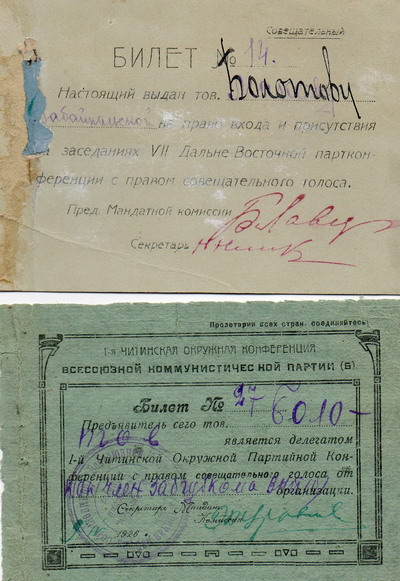 Совещательный
БИЛЕТ № 14.
Настоящий выдан тов. Болотову
Забайкальской на право входа и присутствия
на заседаниях VII Дальне-Восточной парткон-
ференции с правом совещательного голоса.
Пред. Мандатной комиссии
Секретарь
Пролетарии всех стран, соединяйтесь!
1-я ЧИТИНСКАЯ ОКРУЖНАЯ КОНФЕРЕНЦИЯ
ВСЕСОЮЗНОЙ КОММУНИСТИЧЕСКОЙ ПАРТИИ (Б)
Билет № 27
Предъявитель сего тов.
является делегатом
1-й Читинской Окружной Партийной Кон-
ференции с правом совещательного голоса от
член Забгубкома организации.
Секретарь Мандатн.
Комиссии
1926 г.